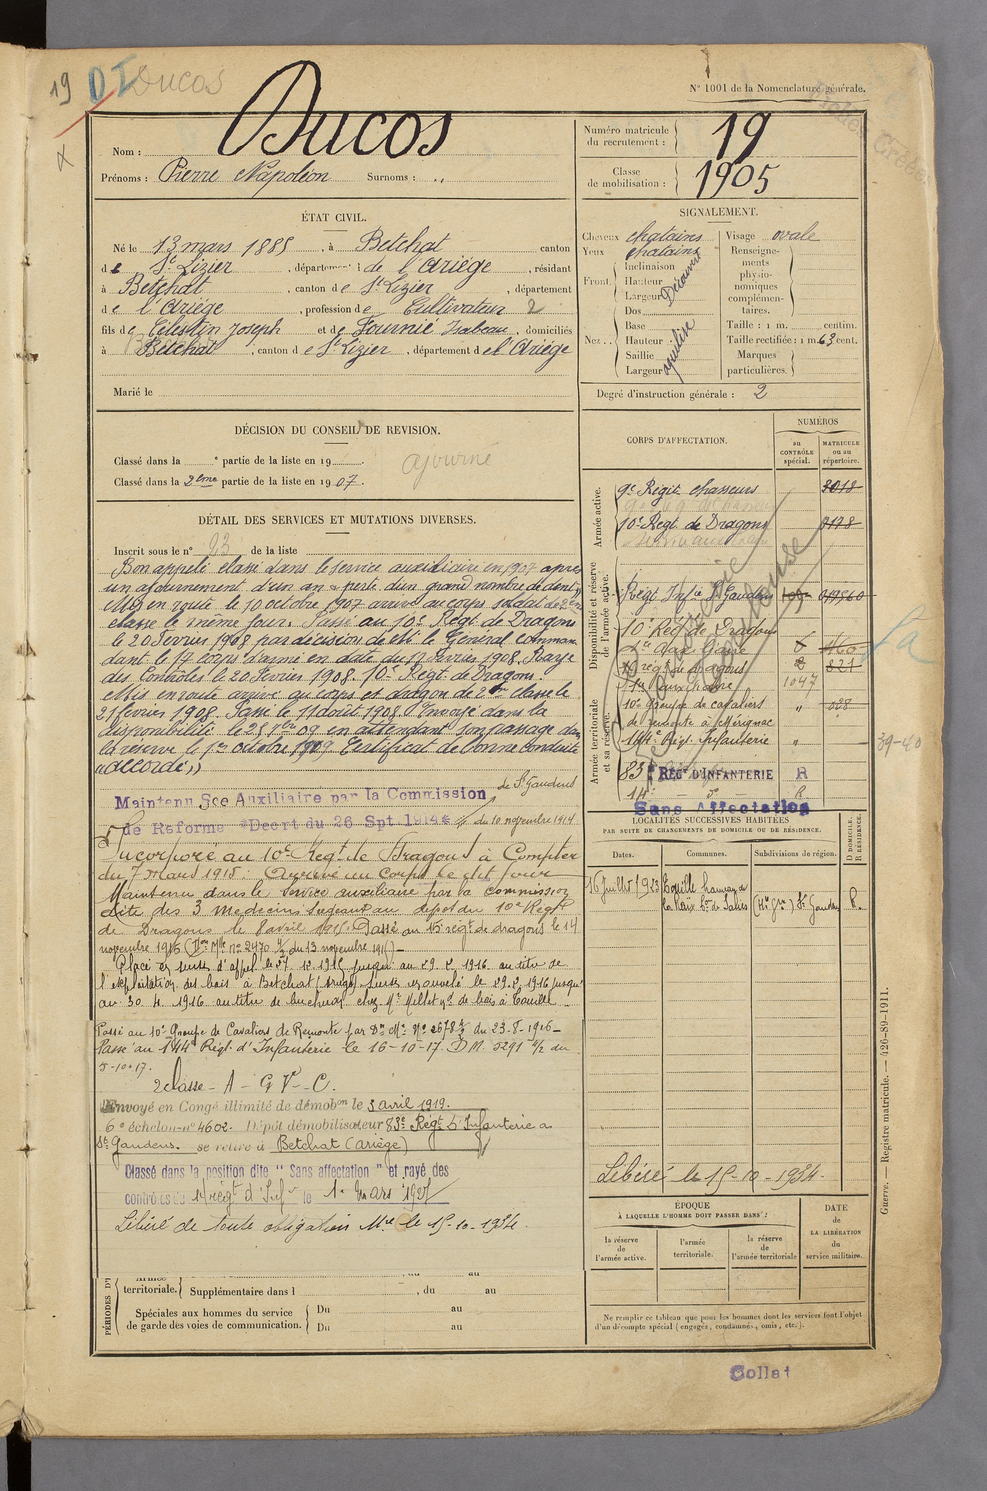 19 DUCOS
N° 1001 de la Nomenclature générale.
Nom : Ducos
Prénoms : Pierre Napoléon Surnoms : ,,
Numéro matricule du recrutement : 19
Classe de mobilisation : 1905
ÉTAT CIVIL.
Né le 13 mars 1885, à Betchat canton
de St Lizier, département de l'Ariège, résidant
à Betchat, canton de St Lizier, département
de l'Ariège, profession de Cultivateur 2
fils de Célestin Joseph et de Fournié Isabeau, domiciliés
à Betchat, canton de St Lizier, département de l'Ariège
Marié le
SIGNALEMENT.
Cheveux chatains
Yeux chatains
Front. Inclinaison Hauteur Largeur Découvert
Nez.. Dos Base Hauteur Saillie Largeur aquilin
Visage ovale
Renseignements physionomiques complémentaires.
Taille : 1 m. centim.
Taille rectifiée : 1 m. 63 cent.
Marques particulières.
Degré d'instruction générale : 2
DÉCISION DU CONSEIL DE REVISION.
Classé dans la ° partie de la liste en 19 . ajourné
Classé dans la 2eme partie de la liste en 1907.
DÉTAIL DES SERVICES ET MUTATIONS DIVERSES.
Inscrit sous le n° 23 de la liste
Bon appelé classé dans le service auxiliaire en 1907 après
un ajournement d'un an « perte d'un grand nombre de dents »
Mis en route le 10 octobre 1907 arrivé au corps soldat de 2e
classe le même jour. Passé au 10e Régt de Dragons
le 20 février 1908 par décision de Mr le Général Comman
dant le 17 Corps d'armée en date du 17 Février 1908. Rayé
des contrôles le 20 Février 1908. 10e Régt de Dragons.
Mis en route arrivé au corps et dragon de 2e classe le
21 février 1908. Passé le 11 août 1908. Envoyé dans la
disponibilité le 25 7bre 09 en attendant son passage dans
la réserve le 1er octobre 1909 Certificat de bonne conduite
« accordé »
Maintenu Sce Auxiliaire par la Commission de St Gaudens
de Réforme Décrt du 26 Spt 1914 du 10 novembre 1914
Incorporé au 10e Régt de Dragons à Compter
du 7 mars 1915. Arrivé au Corps le dit jour
Maintenu dans le Service auxiliaire par la commission
dite des 3 medecins Siégeant au dépot du 10e Régt
de Dragons le 8 avril 1915. Passé au 15e régt de dragons le 14
novembre 1915 (Don Mlle No 2470 du 13 novembre 1915)
Placé en sursis d'appel le 27 12 1915 jusqu'au 29 2 1916 au titre de
l'exploitation des bois à Betchat (Ariège) sursis renouvelé le 29.2.1916 jusqu'
au 30. 4. 1916 au titre de bucheron chez Mr Millet Md de bois à Touille
Passé au 10e Groupe de Cavaliers de Remonte par Don Mle No 2678 du 23-8-1916
Passé au 144e Régt d'Infanterie le 16-10-17. D.M. 5291 du
5-10-17.
2 classe - A - G V - C.
Envoyé en Congé illimité de démobon le 3 avril 1919.
6e échelon-n° 4602. Dépôt démobilisateur 83e Régt d'Infanterie à
St Gaudens. se retire à Betchat (Ariège)
Classé dans la position dite "Sans affectation" et rayé des
contrôles du régt d'Inf le 1er Mars 1927
Libéré de toute obligation Mre le 15-10-1934.
CORPS D'AFFECTATION.
NUMÉROS
au CONTRÔLE spécial.
MATRICULE ou au répertoire.
Armée active.
9e Régit chasseurs 3018
10e Régt. de Dragons
Disponibilité et réserve de l'armée active.
Régt Infie St Gaudens
10e Rég de Dragons
régt de dragons 821
1047
Armée territoriale et sa réserve.
10e groupe de cavaliers
de remonte à Mérignac
144e Régt. Infanterie
83e RÉGt D'INFANTERIE R
Sans Affectation
39-40
LOCALITÉS SUCCESSIVES HABITÉES
PAR SUITE DE CHANGEMENTS DE DOMICILE OU DE RÉSIDENCE.
Dates. Communes. Subdivisions de région. D DOMICILE. R RÉSIDENCE.
16 Juillet 1923 Touille hameau de (Hte Gne) St Gaudens R.
Libéré le 15-10-1934.
ÉPOQUE
À LAQUELLE L'HOMME DOIT PASSER DANS :
la réserve de l'armée active. l'armée territoriale. la réserve de l'armée territoriale
DATE de LA LIBÉRATION du service militaire.
PÉRIODES D'
territoriale. Supplémentaire dans l , du au
Spéciales aux hommes du service de garde des voies de communication. Du au
Du au
Ne remplir ce tableau que pour les hommes dont les services font l'objet
d'un décompte spécial (engagés, condamnés, omis, etc.).
Guerre. — Registre matricule. — 426-89-1911.
Collat